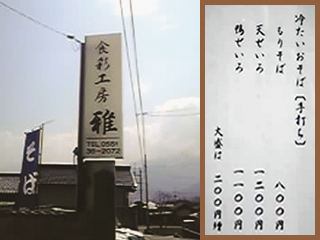 食彩工房
雅
TEL.0551
36-2072
そば
冷たいおそば〔手打ち〕
もりそば 八〇〇円
天せいろ 一二〇〇円
鴨せいろ 一一〇〇円
大盛は 二〇〇円増